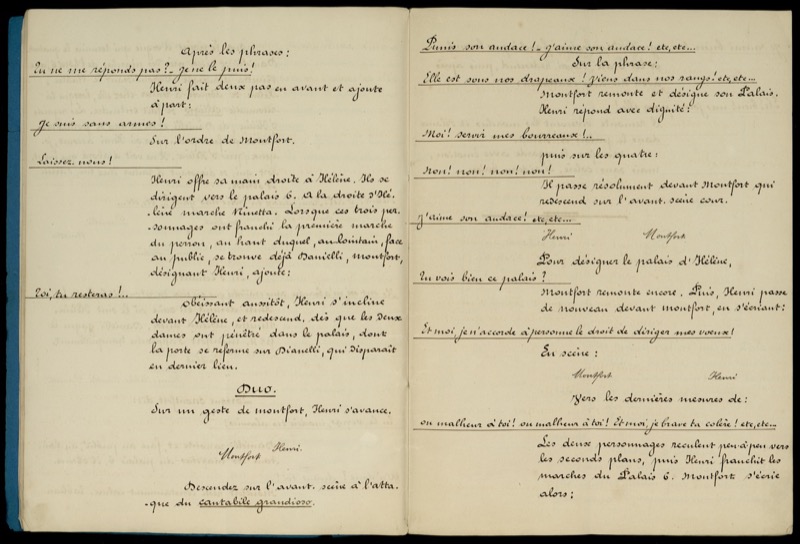 Après les phrases:
Tu ne me réponds pas? - Je ne le puis!
Henri fait deux pas en avant et ajoute
à part:
Je suis sans armes!
Sur l'ordre de Montfort.
Laissez-nous!
Henri offre sa main droite à Hélène. Ils se
dirigent vers le palais 6. A la droite d'Hé-
-lène marche Ninetta. Lorsque ces trois per-
-sonnages ont franchi la première marche
du perron, au haut duquel, au lointain, face
au public, se trouve déjà Danielli, Montfort,
désignant Henri, ajoute:
Toi, tu resteras!..
Obéissant aussitôt, Henri s'incline
devant Hélène, et redescend, dès que les deux
dames ont pénétré dans le palais, dont
la porte se referme sur Dianelli, qui disparaît
en dernier lieu.
Duo.
Sur un geste de Montfort, Henri s'avance.
Montfort Henri.
Descendez sur l'avant-scène à l'atta-
-que du cantabile grandioso.
Punis son audace! - J'aime son audace! etc, etc...
Sur la phrase:
Elle est sous nos drapeaux! Viens dans nos rangs! etc, etc...
Montfort remonte et désigne son Palais.
Henri répond avec dignité:
Moi! servir mes bourreaux!..
puis sur les quatre:
Non! non! non! non!
Il passe résolument devant Montfort qui
redescend sur l'avant-scène cour.
J'aime son audace! etc, etc...
Henri Montfort
Pour désigner le palais d'Hélène,
Tu vois bien ce palais?
Montfort remonte encore. Puis, Henri passe
de nouveau devant Montfort, en s'écriant:
Et moi, je n'accorde à personne le droit de diriger mes voeux!
En scène:
Montfort Henri
Vers les dernières mesures de:
ou malheur à toi! ou malheur à toi! Et moi, je brave ta colère! etc, etc...
Les deux personnages reculent peu à peu vers
les seconds plans, puis Henri franchit les
marches du Palais 6. Montfort s'écrie
alors: